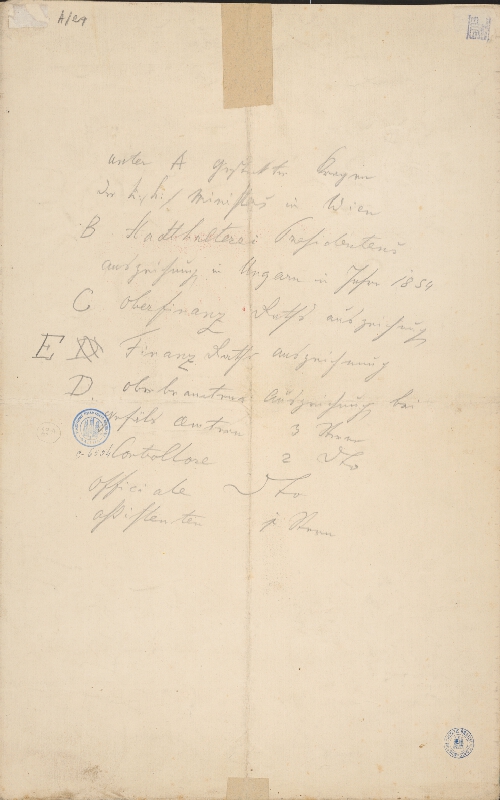 A/29
unter A gestickter Kragen
der k. k. Ministers in Wien
B Stadthalterei Praesidentens
auszeichung in Ungarn in Jahr 1854
C Oberfinanz Raths auszeichung
E Finanz Raths auszeichnung
D. oberbeamten Auszeichung bei
gefäls amtern 3 Stern
Controllore 2 Dto
officiale Dto
assistenten 1 Stern